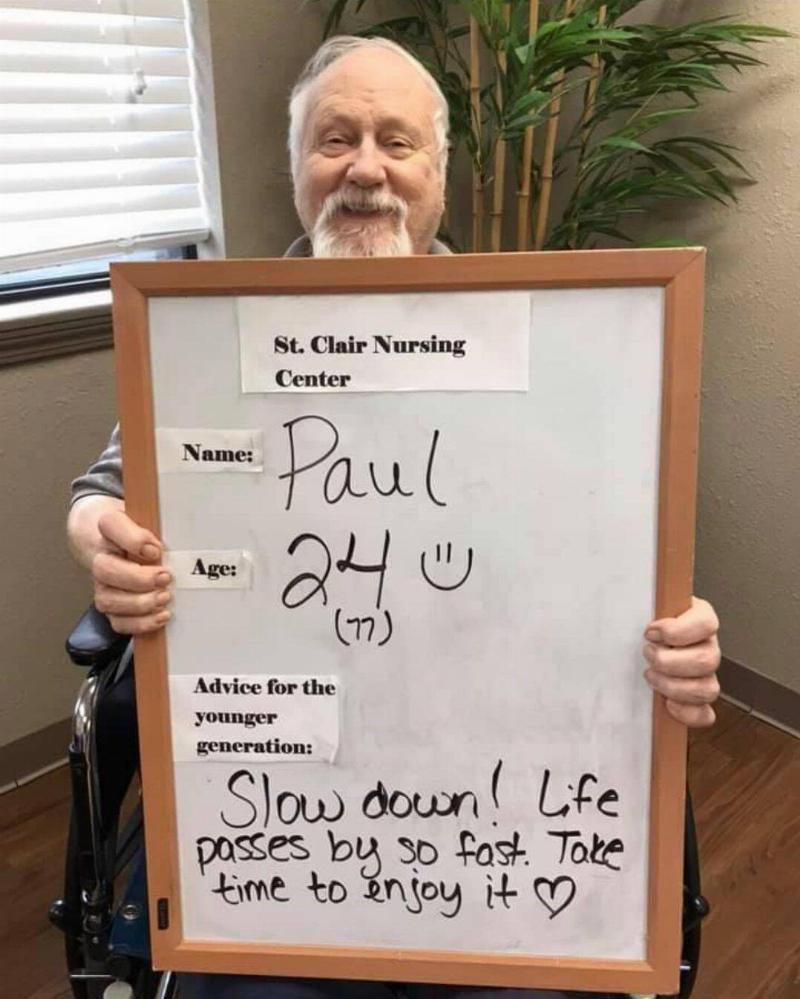 St. Clair Nursing
Center
Name: Paul
Age: 24
(77)
Advice for the
younger
generation:
Slow down! Life
passes by so fast. Take
time to enjoy it ♡